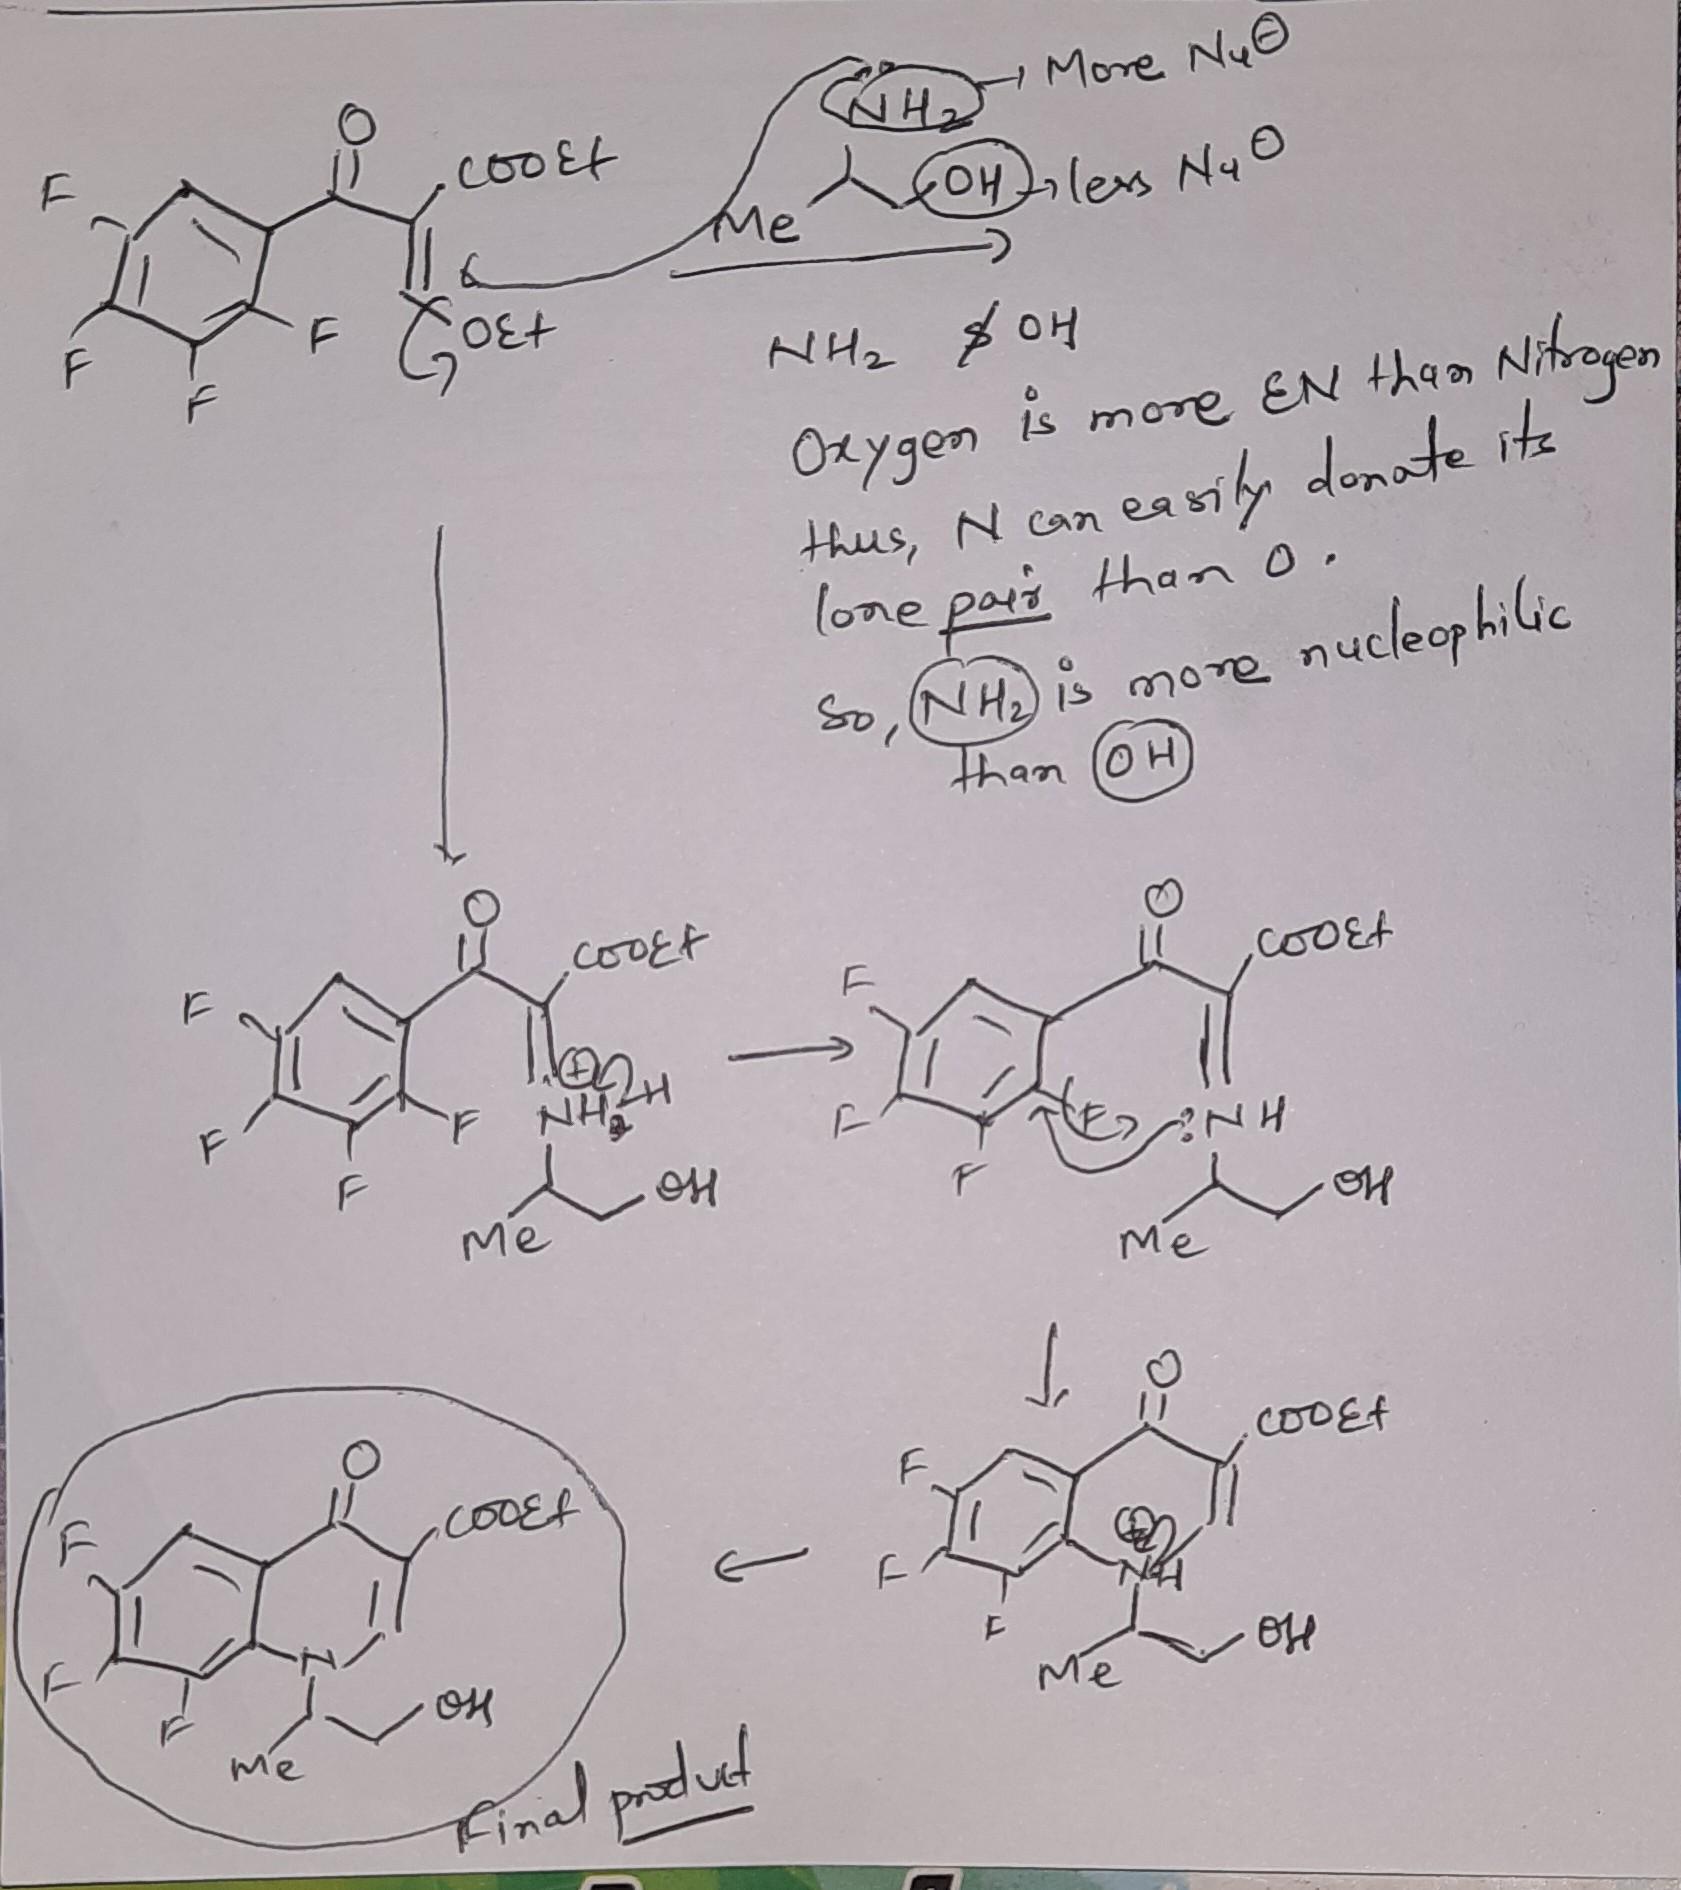 NH2 → More Nu⊖
O
COOEt
OH → less Nu⊖
F
Me
OEt
F
F
F
NH2 $ OH
Oxygen is more EN than Nitrogen
thus, N can easily donate its
lone pair than O.
So, NH2 is more nucleophilic
than OH
O
COOEt
F
⊕
NH2 H
F
F
F
OH
Me
O
COOEt
F
F
F
:NH
F
OH
Me
O
COOEt
F
⊕
F
NH
F
OH
Me
O
COOEt
F
F
N
F
OH
Me
Final product